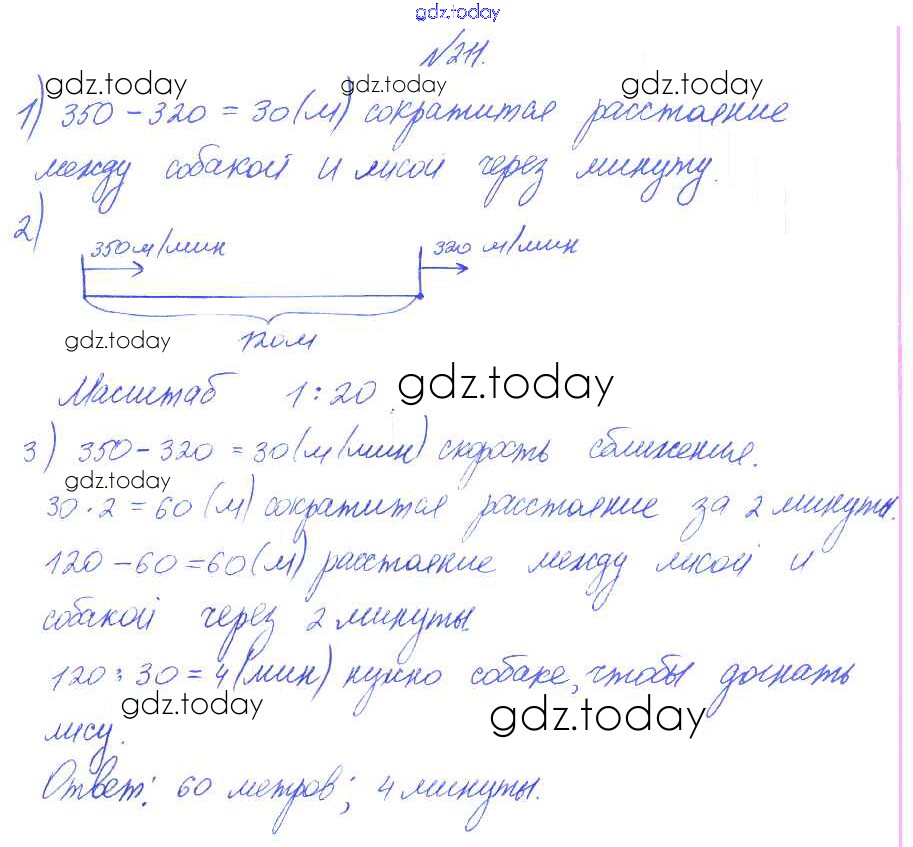 gdz.today
№211.
gdz.today gdz.today gdz.today
1) 350 - 320 = 30 (м) сократится расстояние
между собакой и лисой через минуту.
2)
350 м/мин 320 м/мин
120 м
gdz.today
Масштаб 1 : 20 gdz.today
3) 350 - 320 = 30 (м/мин) скорость сближения.
gdz.today
30 · 2 = 60 (м) сократится расстояние за 2 минуты.
120 - 60 = 60 (м) расстояние между лисой и
собакой через 2 минуты
120 : 30 = 4 (мин) нужно собаке, чтобы догнать
gdz.today gdz.today
лису.
Ответ: 60 метров; 4 минуты.